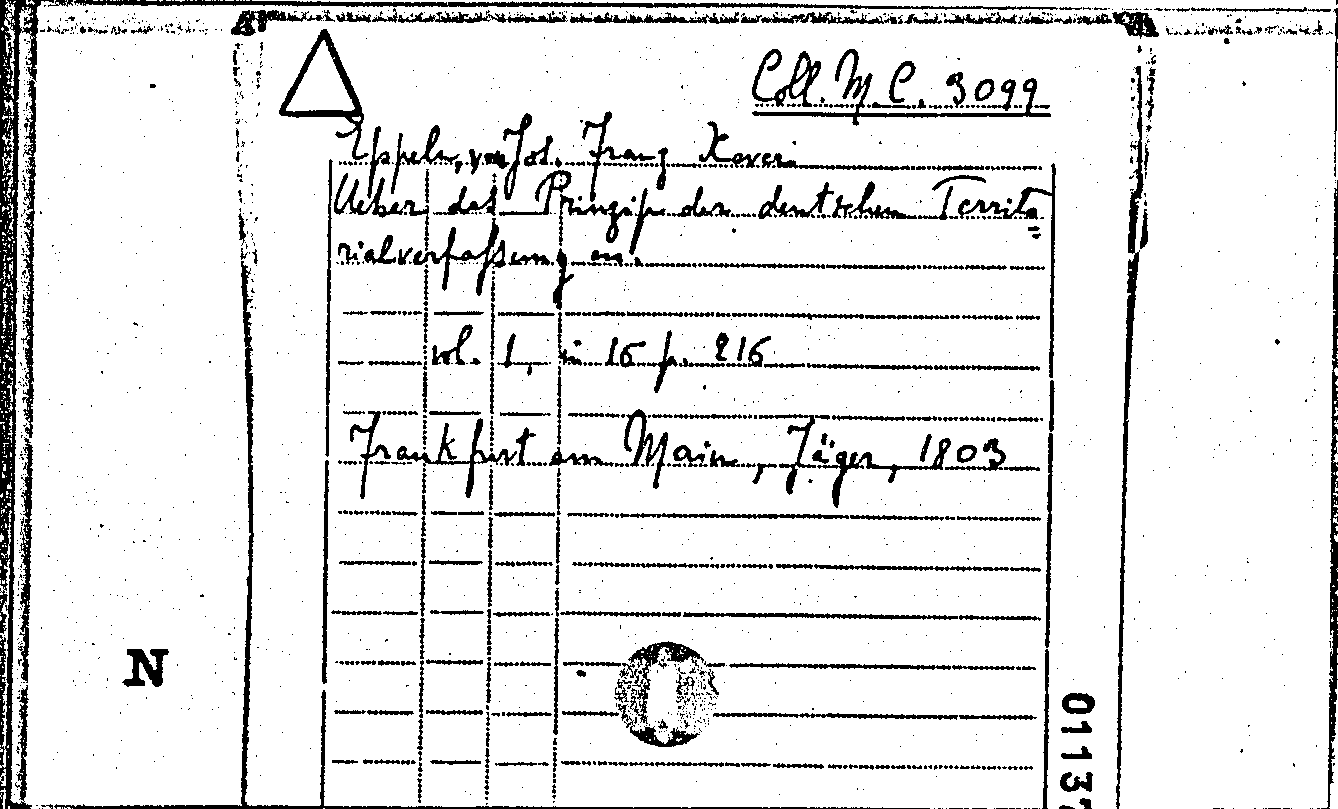 Coll. M. C. 3099
Eppeln, von Jos. Franz Xaver.
Ueber das Prinzip der deutschen Territo=
rialverfassung
vol. 1, in 16 p. 216
Frankfurt am Main, Jäger, 1803
N
0113